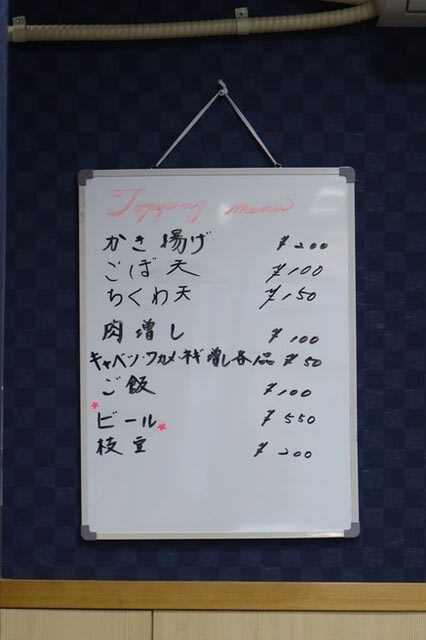 Topping menu
かき揚げ ¥200
ごぼ天 ¥100
ちくわ天 ¥150
肉増し ¥100
キャベツ・ワカメ・ネギ増し各1品 ¥50
ご飯 ¥100
ビール ¥550
枝豆 ¥200